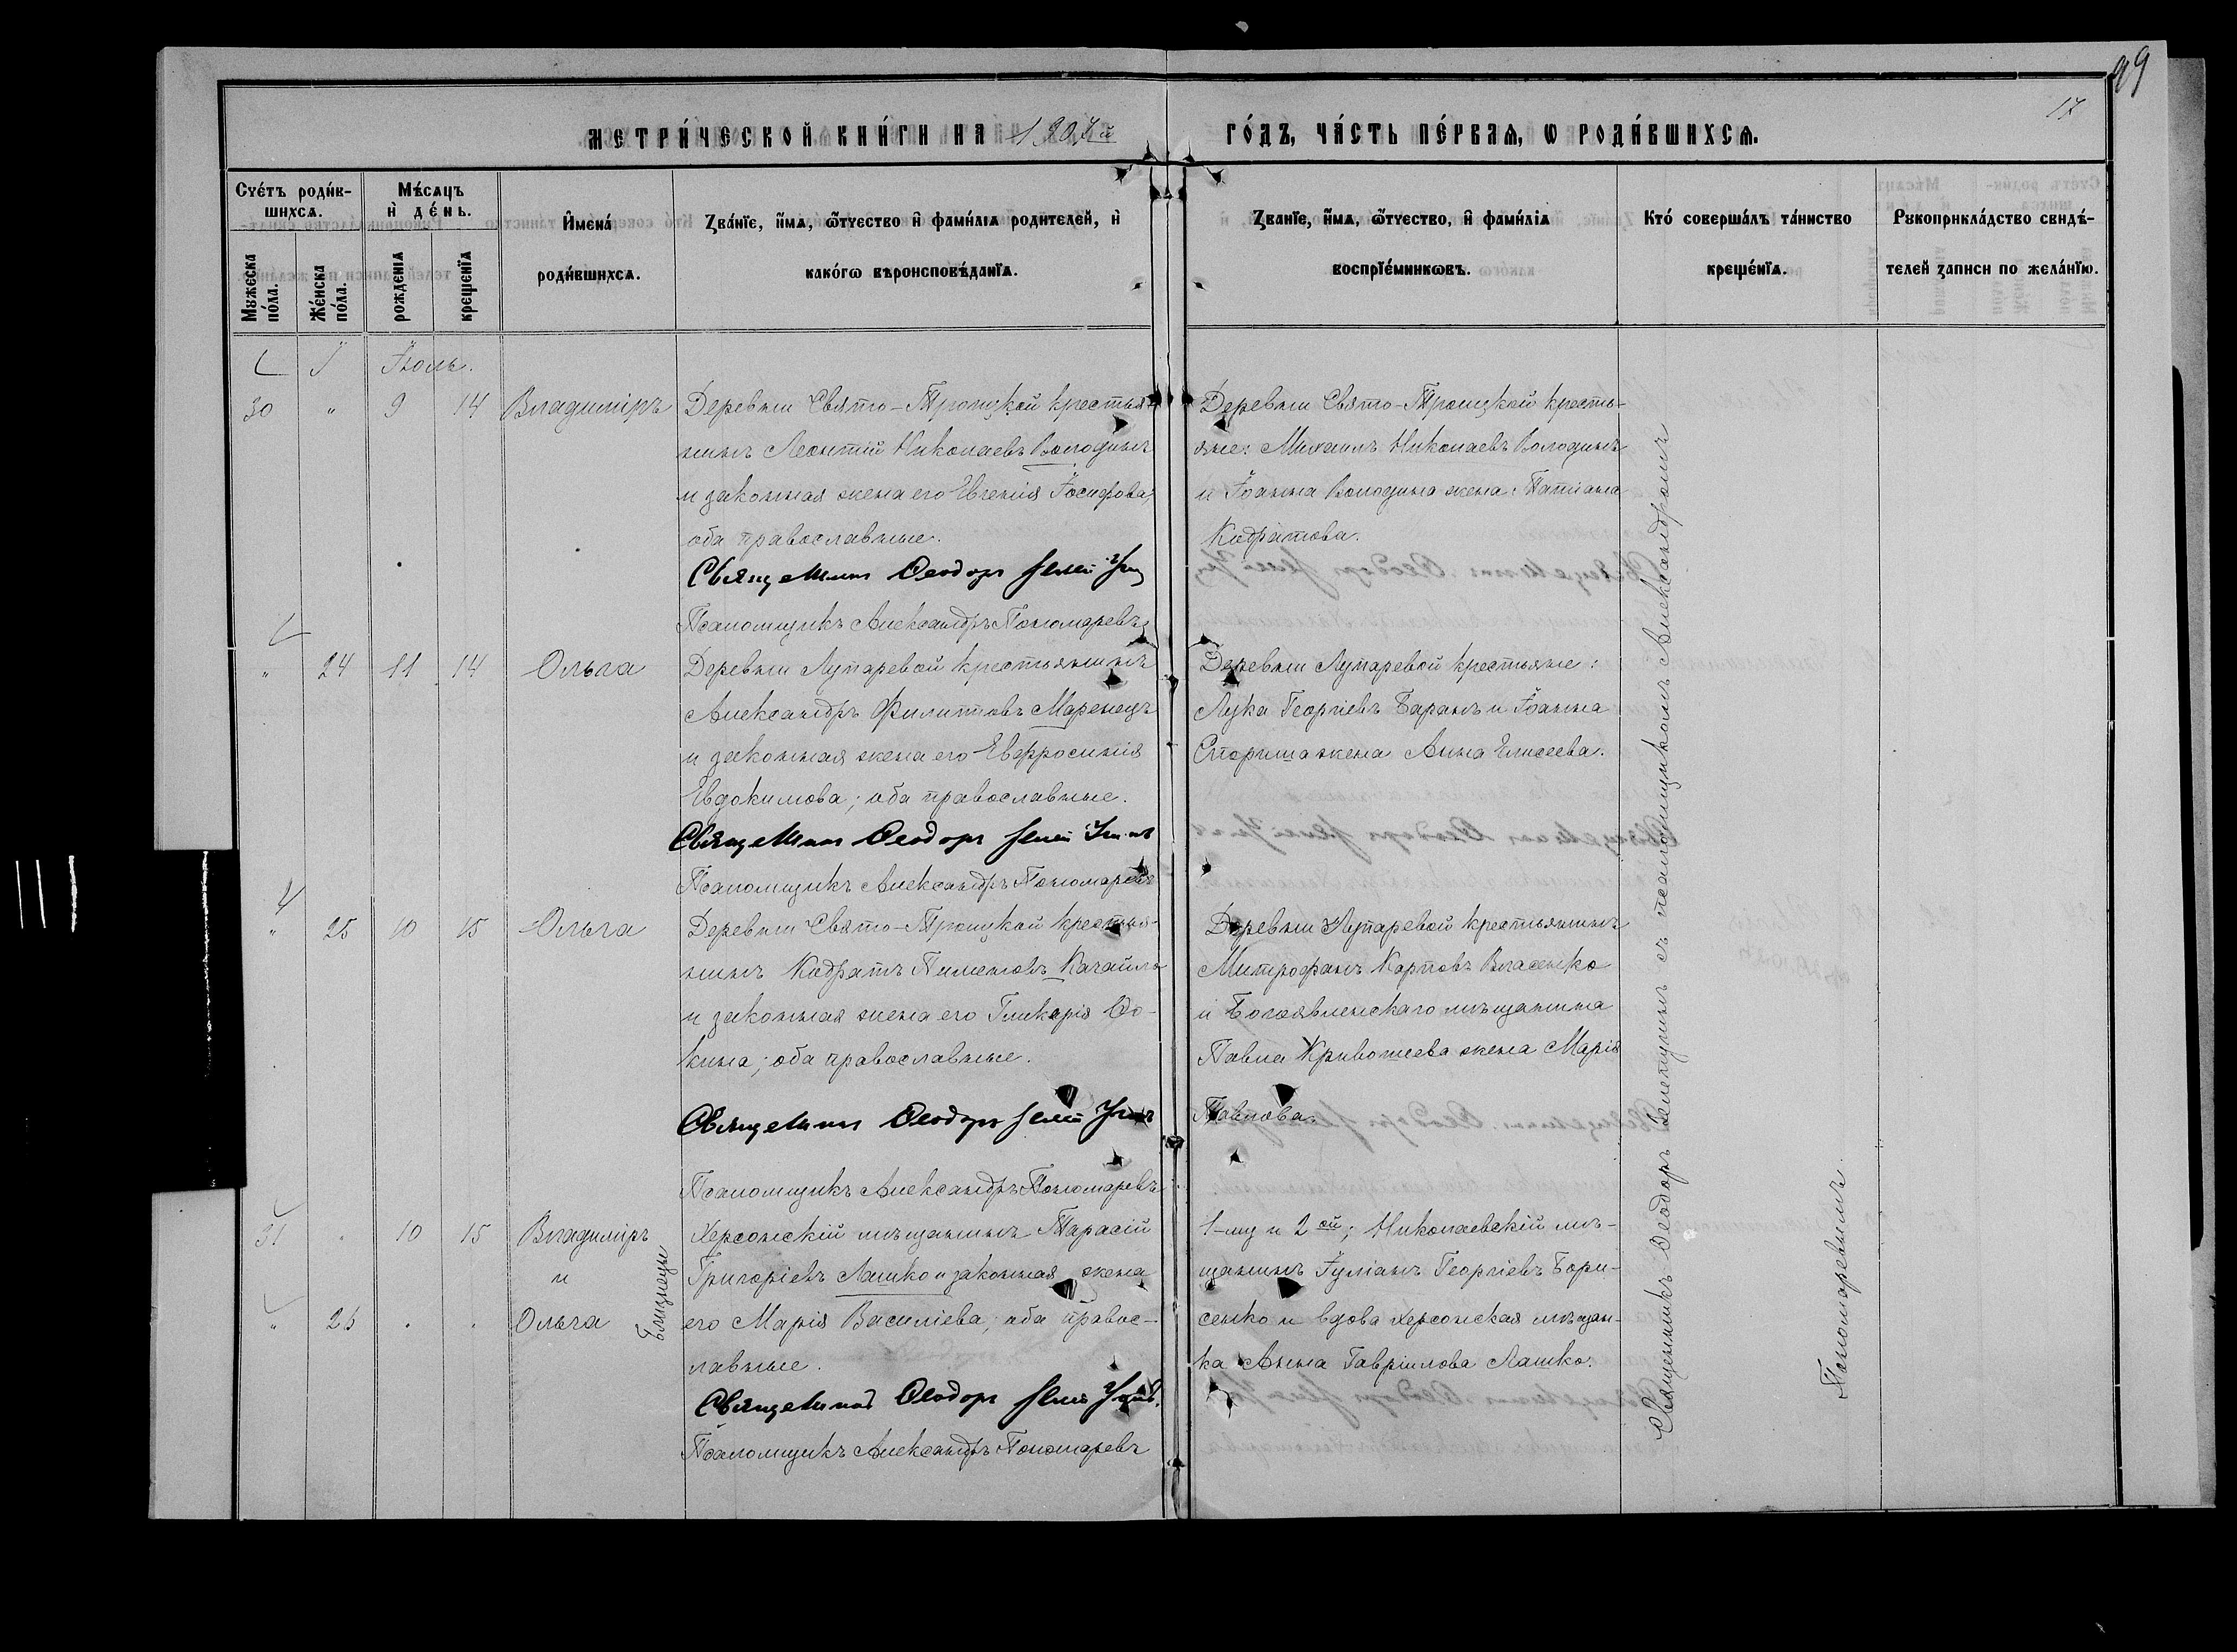 99
17
МЕТРИ́ЧЕСКОЙ КНИ́ГИ НА 1907й ГО́ДЪ, ЧА́СТЬ ПЕ́РВАЯ, Ѡ РОДИ́ВШИХСѦ.
Сче́тъ роди́в-
шихсѧ.
Мꙋжеска по́ла.
Же́нска по́ла.
Мѣ́сѧцъ
и҆ де́нь.
рожденїѧ
крещенїѧ
И҆мена̀
роди́вшихсѧ.
Зва́нїе, и҆́мѧ, ѻ҆́тчество и҆ фамѝлїѧ родителей, и҆
како́гѡ вѣроисповѣ́данїѧ.
Званїе, и҆́мѧ, ѻ҆́тчество, и҆ фамѝлїѧ
воспрїе́мникѡвъ.
Кто́ соверша́лъ та́инство
креще́нїѧ.
Рꙋкоприкла́дство свидѣ́-
телей записи по жела́нїю.
Іюль.
30 " 9 14 Владиміръ
Деревни Свято-Троицкой крестья-
нинъ Леонтій Николаевъ Володинъ
и законная жена его Евгенія Іосифова;
оба православные.
Священникъ Ѳеодоръ
Псаломщикъ Александръ Пономаревъ
Деревни Свято-Троицкой кресть-
яне: Михаилъ Николаевъ Володинъ
и Іоанна Володина жена Татіана
Кодратова.
" 24 11 14 Ольга
Деревни Лупаревой крестьянинъ
Александръ Филипповъ Маренецъ
и законная жена его Евфросинія
Евдокимова; оба православные.
Священникъ Ѳеодоръ
Псаломщикъ Александръ Пономаревъ
Деревни Лупаревой крестьяне:
Лука Георгіевъ Баранъ и Іоанна
Спориша жена Анна Елисеева.
" 25 10 15 Ольга
Деревни Свято-Троицкой крестья-
нинъ Кодратъ Пименовъ Качайло
и законная жена его Гликерія Ѳо-
кина; оба православные.
Священникъ Ѳеодоръ
Псаломщикъ Александръ Пономаревъ
Деревни Лупаревой крестьянинъ
Митрофанъ Карповъ Власенко
и Богоявленскаго мѣщанина
Павла Кривошеева жена Марія
Павлова.
31 " 10 15 Владиміръ
и
" 26 " " Ольга
близнецы
Херсонскій мѣщанинъ Тарасій
Григоріевъ Лашко и законная жена
его Марія Василіева; оба правос-
лавные.
Священникъ Ѳеодоръ
Псаломщикъ Александръ Пономаревъ
1-му и 2ой; Николаевскій мѣ-
щанинъ Іуліанъ Георгіевъ Бори-
сенко и вдова херсонская мѣщан-
ка Анна Гавріилова Лашко.
Священникъ Ѳеодоръ съ псаломщикомъ Александромъ
Пономаревымъ.